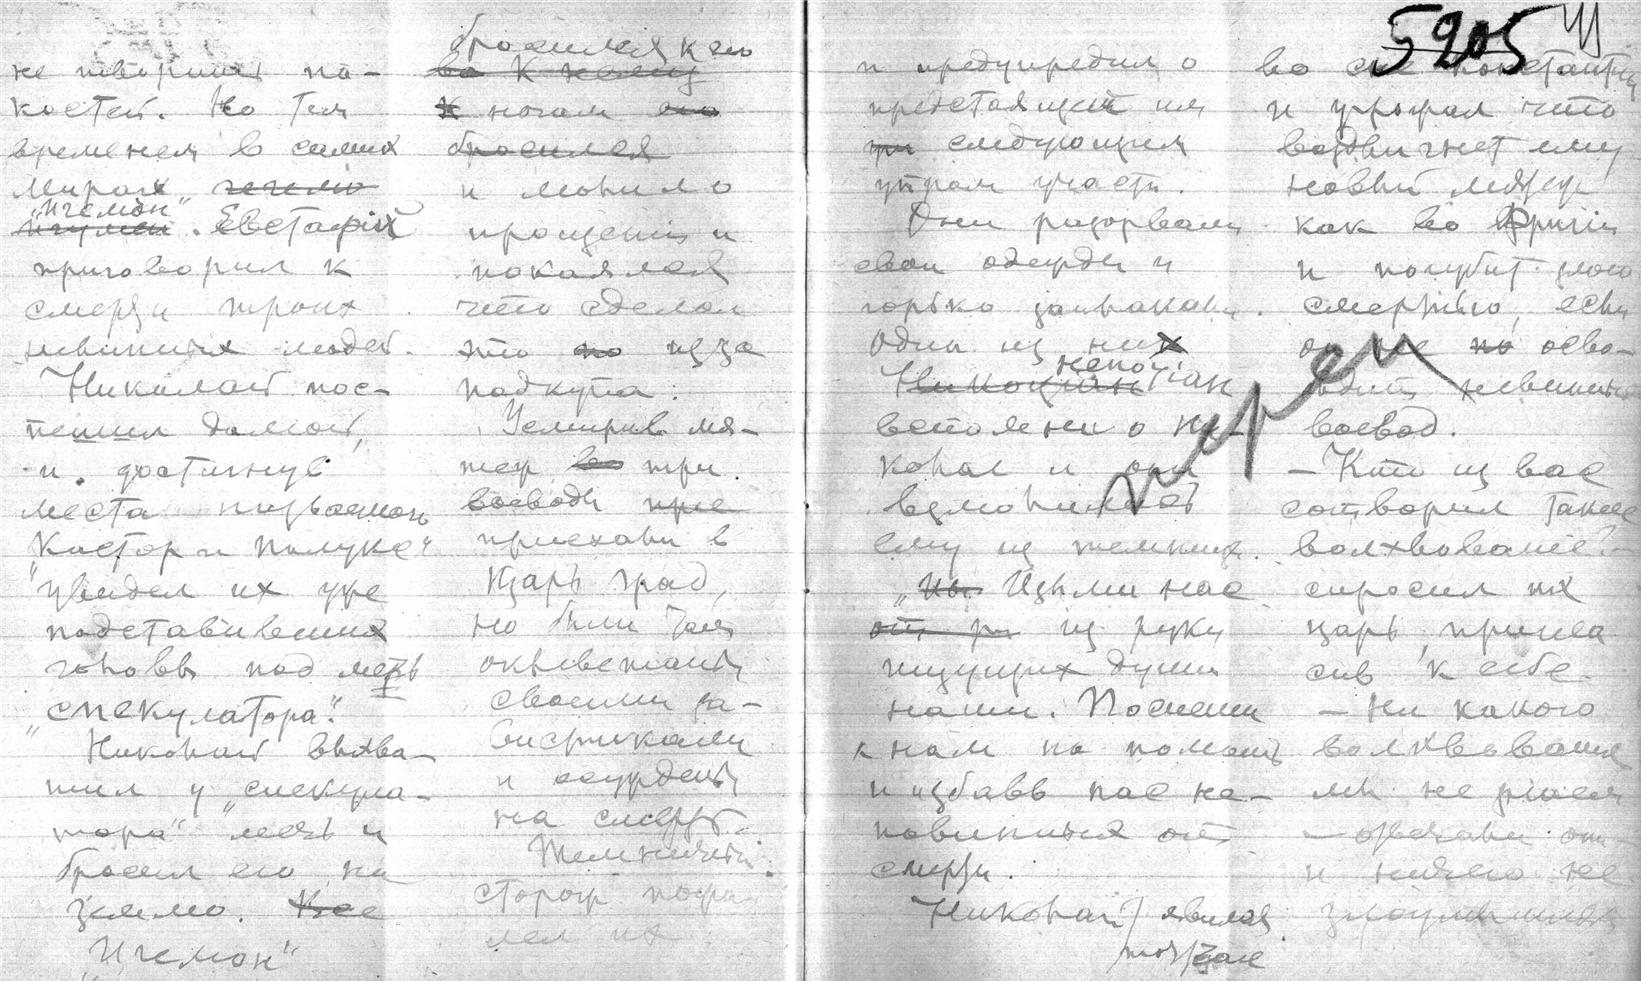 не творить па-
костей. Но тем
временем в самих
Мирах чегемо
"игемон"
игумен. Евстафій
приговорил к
смерти троих
невинных людей.
Николай пос-
пешил домой,
и. достигнув
места называемом
"Кастор и Полукс"
увидел их уже
подставивших
головы под мечь
"спекулатора".
Николай выхва-
тил у "спекула-
тора" мечь и
бросил его на
землю. Все
"Игемон"
бросился к его
во к нему
к ногам его
бросился
и молил о
прощеніи и
покаялся
что сделал
это по из за
подкупа.
Усмирив мя-
теж во три
воеводы при
приехали в
Царь град,
но были там
оклеветаны
своими за-
вистниками
и осуждены
на смерть.
Темничный
сторож пожа
лел их
5905 41
и предупредил о
предстоящей им
на следующим
утром участи.
Они разорвали
свои одежды и
горько заплакали.
Один из них
непотіан
Никокціян
вспомнил о Ни-
колае и они
взмолились
ему из темницы.
"Из Изьми нас
от ру из руки
ищущих души
наши. Поспеши
к нам на помощь
и избавь нас не-
повинных от
смерти.
Николай явился
тотчас
во сне Константину
и угрожал что
воздвигнет ему
новый мятеж
как во Фригіи
и погубит злою
смертью, если
он не по осво-
бодит невинных
воевод.
– Кто из вас
сотворил такое
волхвованіе? –
спросил их
царь, пригла
сив к себе.
– Ни какого
волхвованія
мы не знаем
– отвечали они
и ничего не
злоумышляли